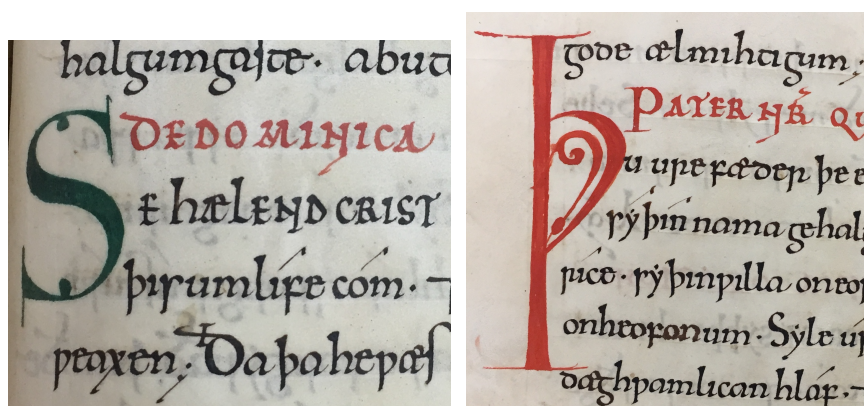 halgumgaste. abute
DEDOMINICA
SE hælEND CRIST
þisumlífe cóm. ⁊
ƿeaxen. Ða þa heƿæs
gode ælmihtigum;
PATER NR̄ QU
Þu ure fæder þe e
sý þin nama gehal
ríce. sý þinƿilla oneor
onheofonum. Sýle ur
dæghƿamlican hláf. ⁊